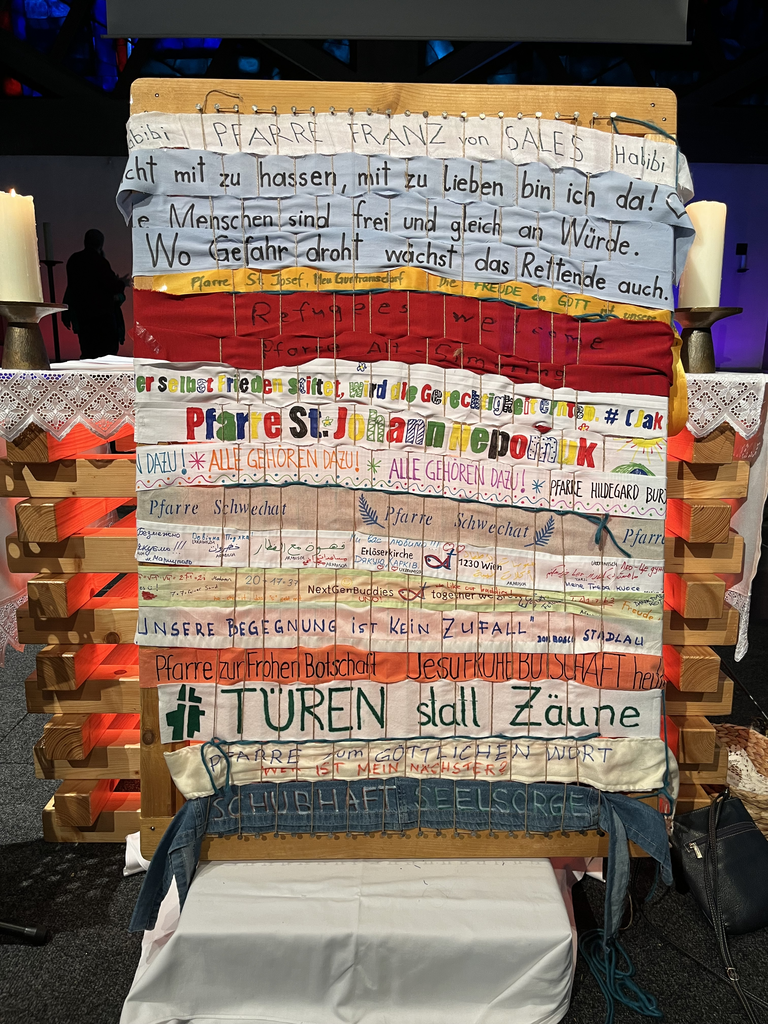 bibi PFARRE FRANZ von SALES Habibi
cht mit zu hassen, mit zu lieben bin ich da!
e Menschen sind frei und gleich an Würde.
Wo Gefahr droht wächst das Rettende auch.
Pfarre St. Josef, Neu Guntramsdorf Die FREUDE an GOTT ist unsere
Refugees welcome
Pfarre Alt-Simmering
er selbst Frieden stiftet, wird die Gerechtigkeit ernten. # (Jak
Pfarre St. Johann Nepomuk
N DAZU! ALLE GEHÖREN DAZU! ALLE GEHÖREN DAZU! PFARRE HILDEGARD BUR
Pfarre Schwechat Pfarre Schwechat Pfarre
Erlöserkirche 1230 Wien
NextGenBuddies together we
Freude
UNSERE BEGEGNUNG IST KEIN ZUFALL" DON BOSCO STADLAU
Pfarre zur Frohen Botschaft Jesu FROHE BOTSCHAFT
# TÜREN statt Zäune
PFARRE zum GÖTTLICHEN WORT
WER IST MEIN NÄCHSTER?
SCHUBHAFT SEELSORGE